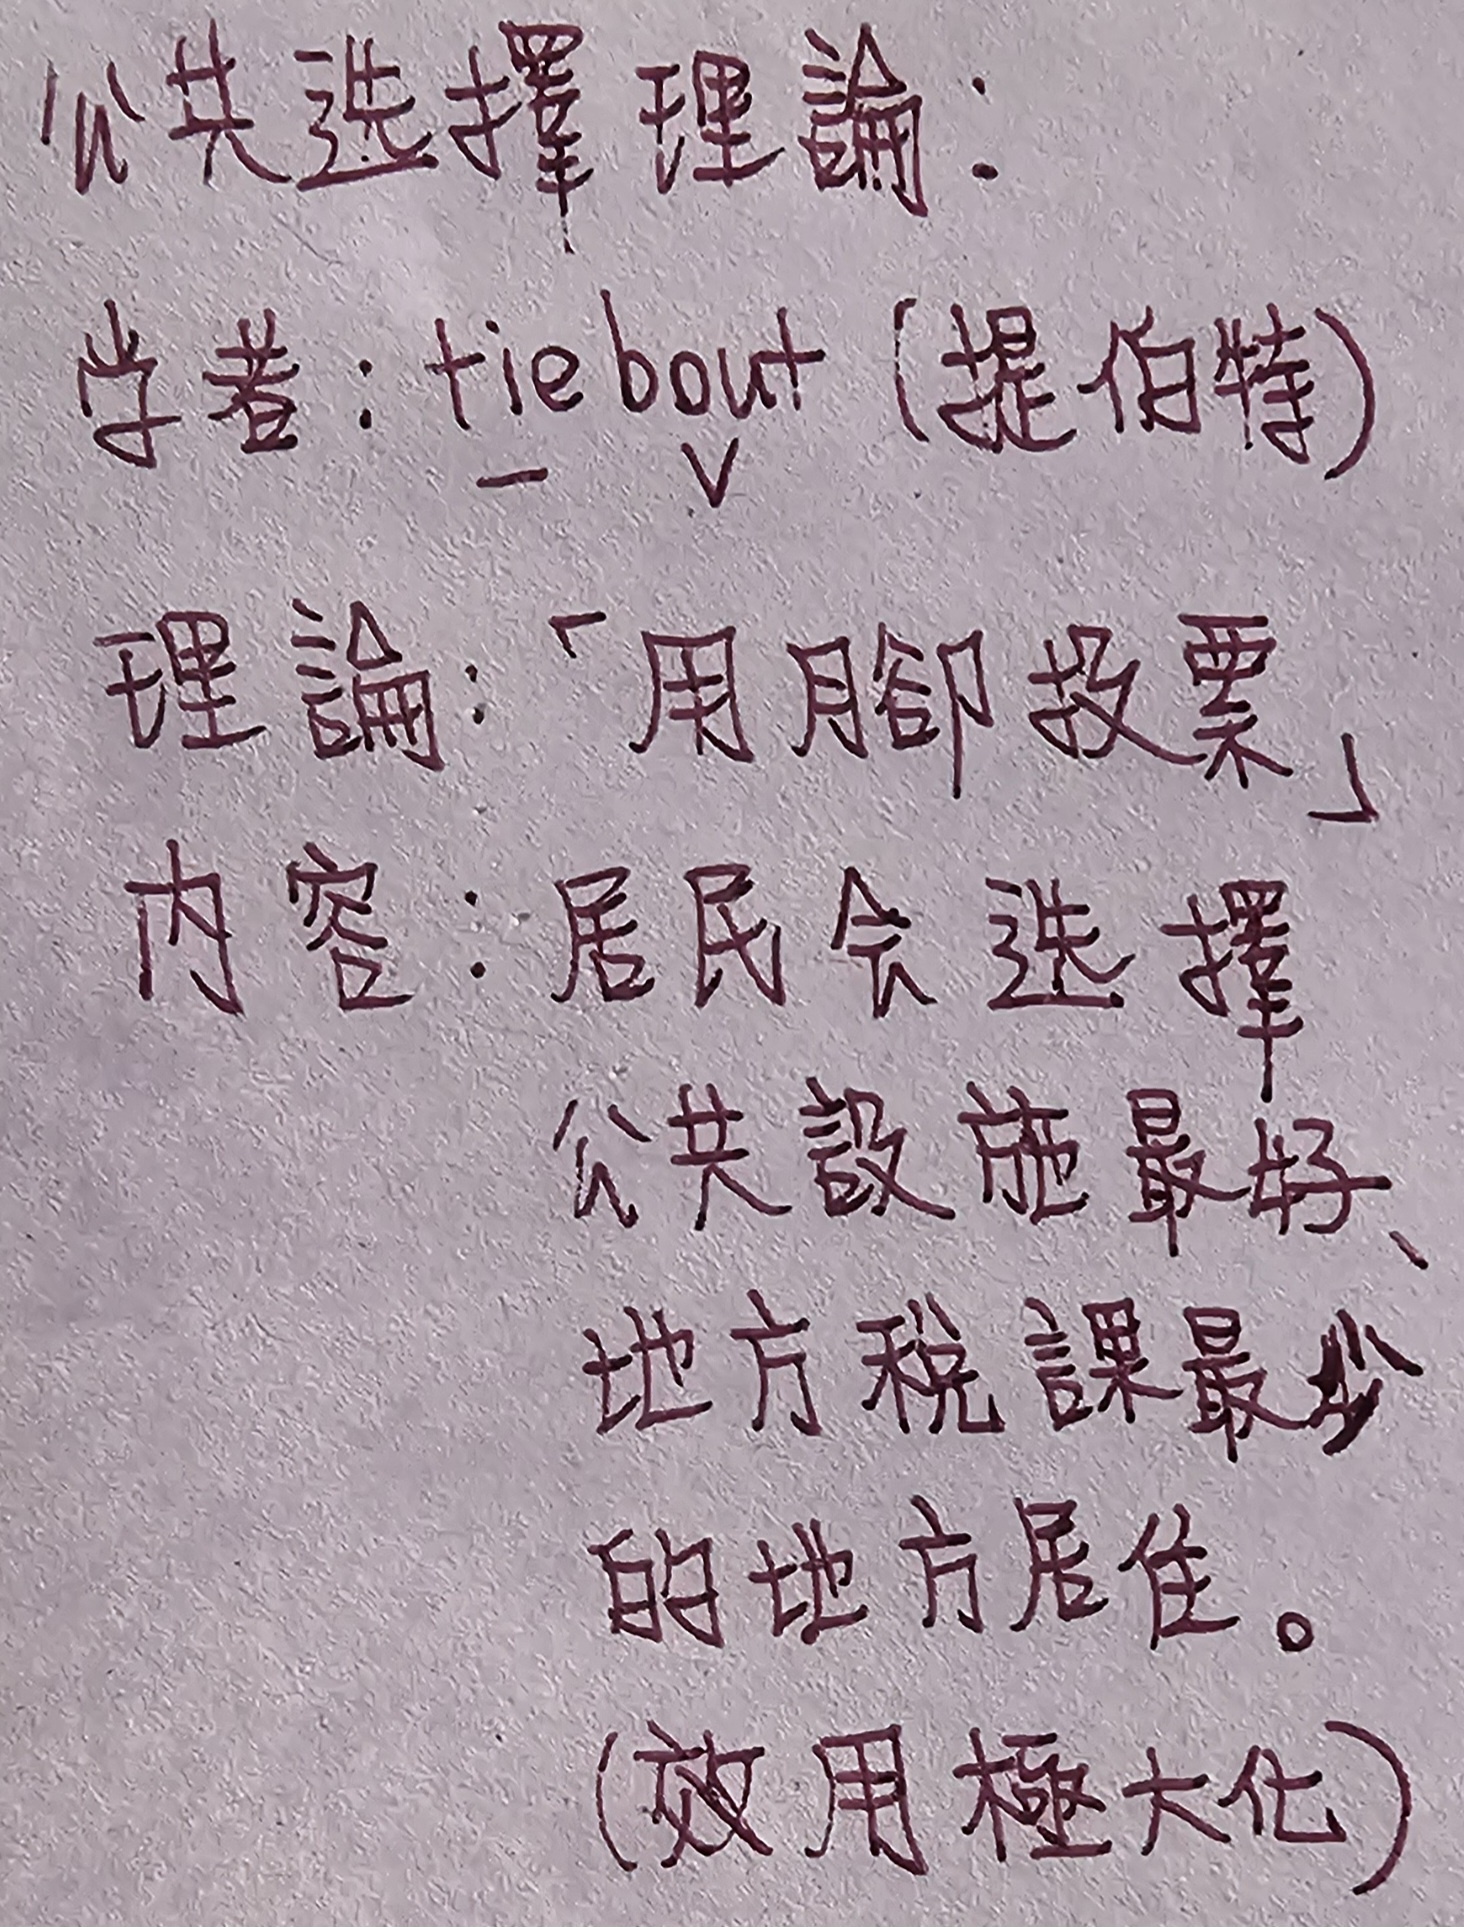 公共选擇理論：
学者：tiebout（提伯特）
理論：「用腳投票」
内容：居民会选擇
公共設施最好、
地方稅課最少
的地方居住。
（效用極大化）